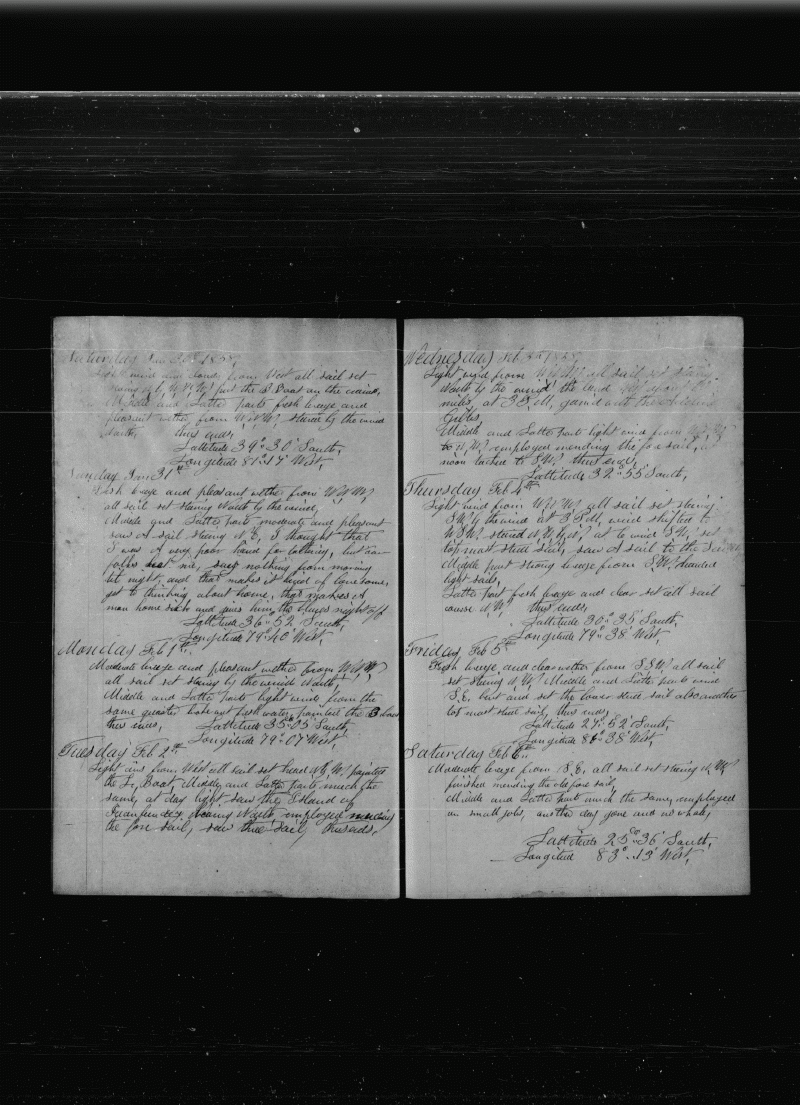 Saturday Jan 30th 1858,
Light wind and cloudy from West all sail set
Middle and Latter parts fresh breeze and
pleasant wether from W.N.W, stearing by the wind
South, thus ends,
Lattitude 39°..30' South,
Longitude 81°..17' West,
Sunday Jan 31st
Fresh breeze and pleasant wether from W.N.W,
all sail set stearing North by the wind,
Middle and Latter parts moderate and pleasant
saw a sail stearing N.E, I thought that
I was a very poor hand for talking, but
me, say nothing from morning
til night, and that makes it kind of lonesome,
get to thinking about home, that makes a
man home sick and gives him the blues right off
Lattitude 36°..52' South,
Longitude 79°..40' West,
Monday Feb 1st.
Moderate breeze and pleasant wether from W.N.W,
all sail set stearing by the wind North,
Middle and Latter parts light wind from the
same quarter broke out fresh water, painted the B boat
thus ends, Lattitude 35°..05' South,
Longitude 79°..07' West,
Tuesday Feb 2nd
Light airs from West all sail set head N.N.W, painted
the L. Boat, Middle and Latter parts much the
same, at day light saw the Island of
Juanfundez, bearing North, employed mending
the fore sail, saw three sail, thus ends,
Wednesday Feb 3rd 1858,
Light wind from W.N.W, all sail set stearing
North by the wind, the land
miles, at 3 P.M, gamed with the
Gibbs,
Middle and Latter parts light wind from
to N.W, employed mending the fore sail, at
noon tacked to S.W, thus ends,
Lattitude 32°..55' South,
Thursday Feb 4th
Light wind from W.N.W, all sail set stearing
S.W, by the wind at 3 P.M, wind shifted to
W.S.W, steared N.W, at 6 wind S.W, set
top mast steed sail, saw a sail to the
Middle part strong breeze from S.W, handed
light sails,
Latter part fresh breeze and clear set all sail
course N.W, thus ends,
Lattitude 30°..35' South,
Longitude 79°..38' West,
Friday Feb 5th
Fresh breeze, and clear wether from S.S.W, all sail
set stearing N.W, Middle and Latter parts wind
S.E, bent and set the lower steed sail also another
top mast steed sail, thus ends,
Lattitude 27°..52' South,
Longitude 81°..38' West,
Saturday Feb 6th.
Moderate breeze from S.E, all sail set stearing N.W,
finished mending the old fore sail,
Middle and Latter part much the same, employed
on small jobs, another day gone and no whale,
Lattitude 25°..36' South,
Longitude 83°..13' West,